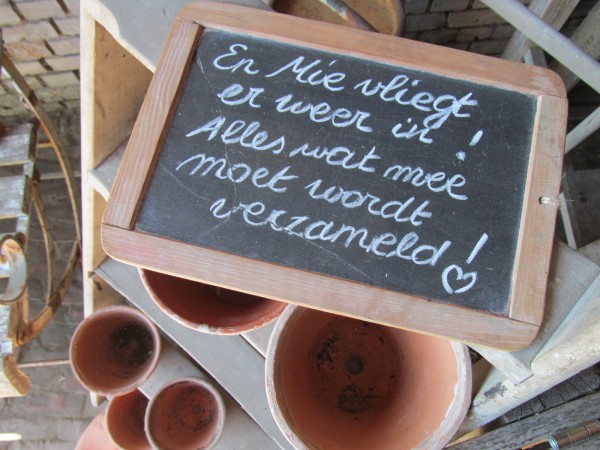 En Mie vliegt
er weer in !
Alles wat mee
moet wordt
verzameld ! ♡